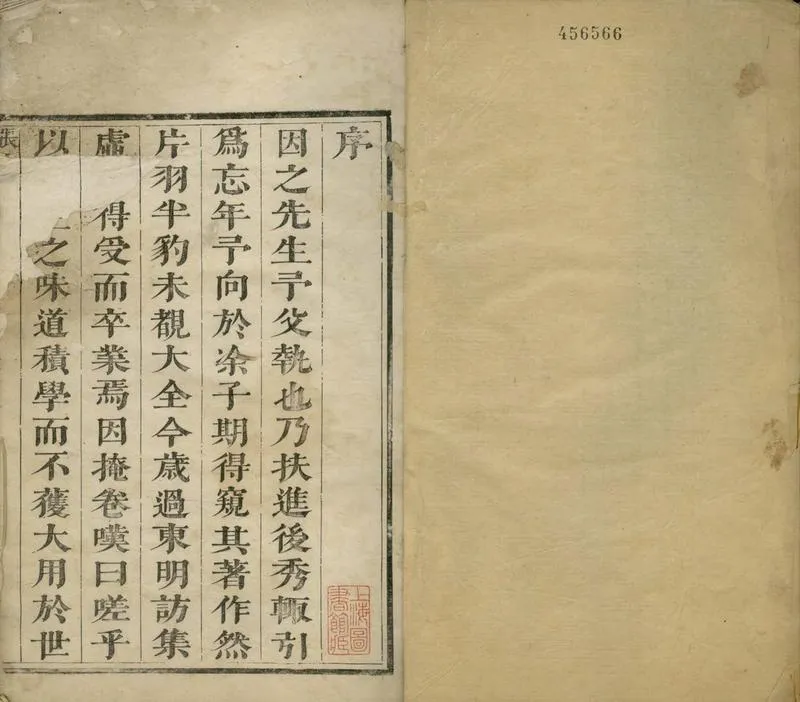 456566
序
因之先生予父執也乃扶進後秀輙引
爲忘年予向於凃子期得窺其著作然
片羽半豹未覩大全今歲過東明訪集
虛得受而卒業焉因掩卷嘆曰嗟乎
以之味道積學而不獲大用於世
上海圖
書館藏